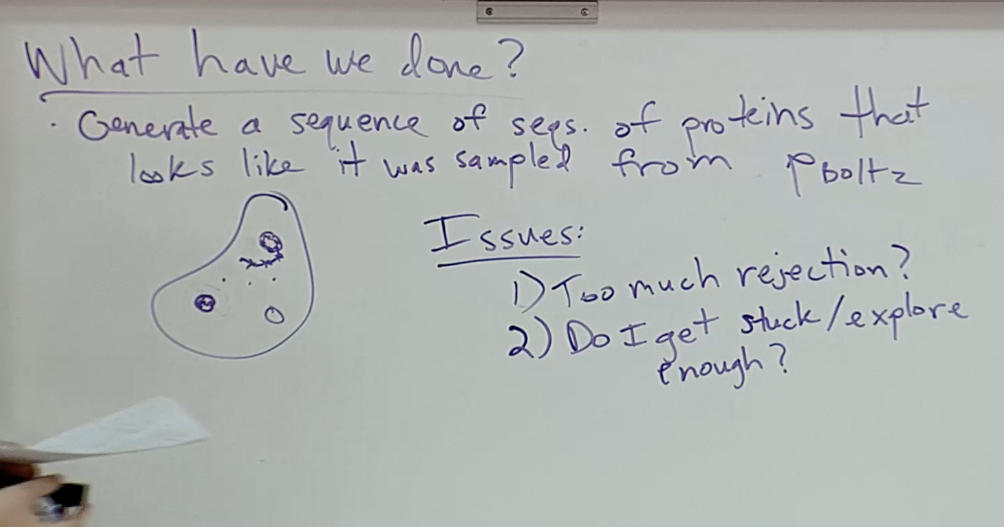 What have we done?
· Generate a sequence of seqs. of proteins that
looks like it was sampled from PBoltz
Issues:
1) Too much rejection?
2) Do I get stuck/explore
enough?